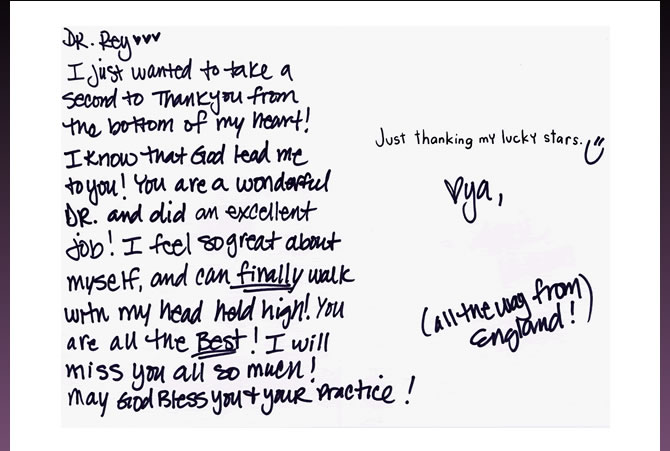 DR. Rey ♥♥♥
I just wanted to take a
second to Thankyou from
the bottom of my heart!
I know that God lead me
to you! You are a wonderful
DR. and did an excellent
job! I feel so great about
myself, and can finally walk
with my head held high! You
are all the Best! I will
miss you all so much!
May God Bless you + your Practice!
Just thanking my lucky stars.
♥ya,
(all the way from
England!)